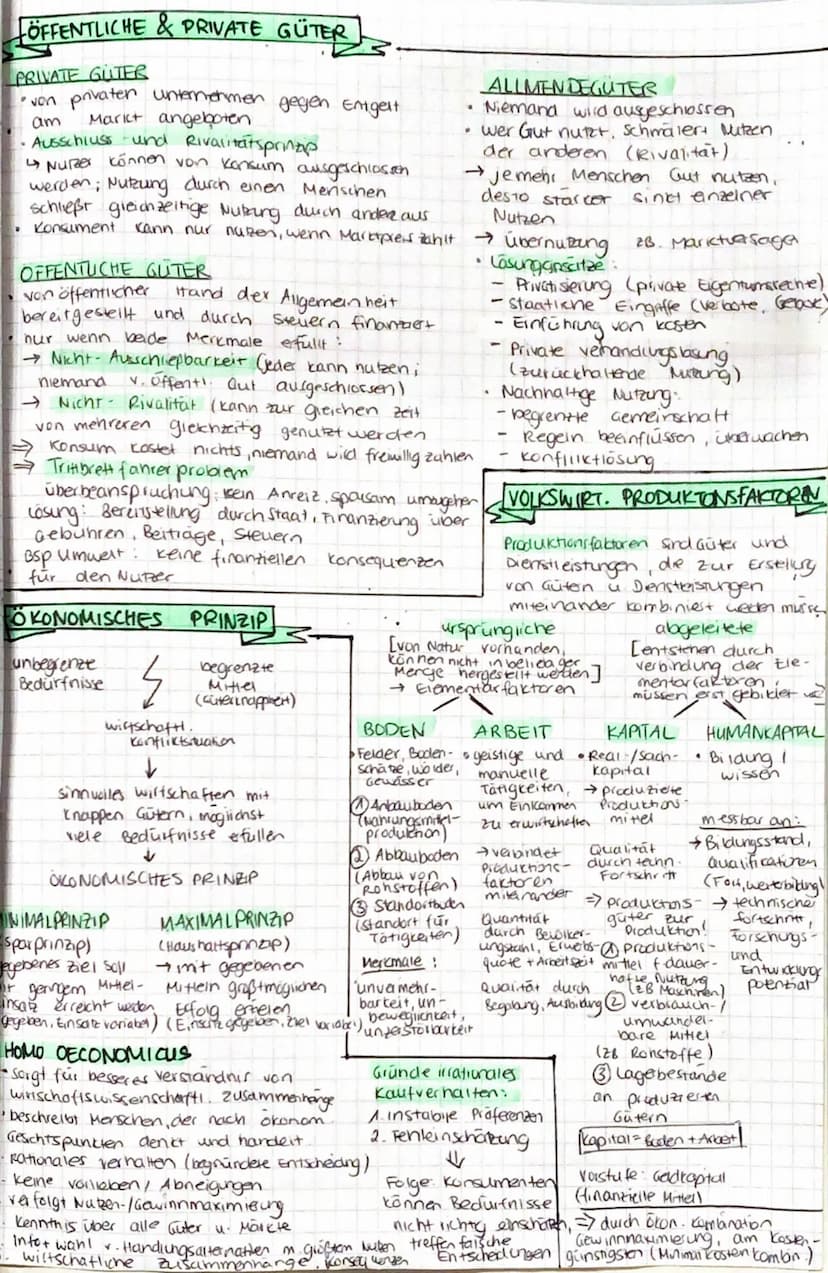 ÖFFENTLICHE & PRIVATE GÜTER
PRIVATE GÜTER
• von privaten Unternehmen gegen Entgelt
am Markt angeboten
• Ausschluss- und Rivalitätsprinzip
↳ Nutzer können von Konsum ausgeschlossen
werden; Nutzung durch einen Menschen
schließt gleichzeitige Nutzung durch andere aus
• Konsument kann nur nutzen, wenn Marktpreis zahlt
ÖFFENTLICHE GÜTER
• von öffentlicher Hand der Allgemeinheit
bereitgestellt und durch Steuern finanziert
• nur wenn beide Merkmale efüllt:
→ Nicht-Ausschließbarkeit (jeder kann nutzen;
niemand v. öffentl. Gut ausgeschlossen)
→ Nicht-Rivalität (kann zur gleichen Zeit
von mehreren gleichzeitig genutzt werden
⇒ Konsum kostet nichts, niemand wird freiwillig zahlen
⇒ Trittbrettfahrerproblem
Überbeanspruchung: kein Anreiz, sparsam umzugehen
Lösung: Bereitstellung durch Staat, Finanzierung über
Gebühren, Beiträge, Steuern
Bsp Umwelt: keine finanziellen Konsequenzen
für den Nutzer
ALLMENDEGÜTER
• Niemand wird ausgeschlossen
• wer Gut nutzt, schmälert Nutzen
der anderen (Rivalität)
→ je mehr Menschen Gut nutzen,
desto stärker sinkt einzelner
Nutzen
→ Übernutzung zB. Marktversage
• Lösungsansätze:
- Privatisierung (private Eigentumsrechte)
- staatliche Eingriffe (Verbote, Gebote)
- Einführung von Kosten
- Private Verhandlungslösung
(zurückhaltende Nutzung)
• Nachhaltige Nutzung:
- begrenzte Gemeinschaft
- Regeln beeinflussen, überwachen
- Konfliktlösung
VOLKSWIRT. PRODUKTONSFAKTOREN
Produktionsfaktoren sind Güter und
Dienstleistungen, die zur Erstellung
von Gütern u Dienstleistungen
miteinander kombiniert werden müssen
ursprüngliche
[von Natur vorhanden,
können nicht in beliebiger
Menge hergestellt werden]
→ Elementarfaktoren
abgeleitete
[entstehen durch
Verbindung der Ele-
mentarfaktoren,
müssen erst gebildet
BODEN
• Felder, Boden-
schätze, Wälder,
Gewässer
① Anbauboden
(Nahrungsmittel-
produktion)
② Abbauboden
(Abbau von
Rohstoffen)
③ Standortboden
(Standort für
Tätigkeiten)
Merkmale:
unvermehr-
barkeit, un-
beweglichkeit,
unzerstörbarkeit
ARBEIT
• geistige und
manuelle
Tätigkeiten,
um Einkommen
zu erwirtschaften
→ verbindet
Produktions-
faktoren
miteinander
Quantität
durch Bevölker-
ungszahl, Erwerbs-
quote + Arbeitszeit
Qualität durch
Begabung, Ausbildung
KAPITAL
• Real-/Sach-
kapital
→ produzierte
Produktions-
mittel
Qualität
durch techn.
Fortschritt
⇒ Produktions-
güter zur
Produktion!
① Produktions-
mittel f dauer-
hafte Nutzung
(zB Maschinen)
② verbrauch-/
umwandel-
bare Mittel
(zB Rohstoffe)
③ Lagerbestände
an produzierten
Gütern
Kapital = Boden + Arbeit
Vorstufe: Geldkapital
(finanzielle Mittel)
⇒ durch ökon. Kombination
Gewinnmaximierung, am kosten-
günstigsten (Minimalkostenkombin.)
HUMANKAPITAL
• Bildung /
Wissen
messbar an:
→ Bildungsstand,
Qualifikationen
(Fort, Weiterbildung)
→ technischer
Fortschritt,
Forschungs-
und
Entwicklungs
potential
ÖKONOMISCHES PRINZIP
unbegrenzte
Bedürfnisse
begrenzte
Mittel
(Güterknappheit)
wirtschaftl.
Konfliktsituation
↓
sinnvolles Wirtschaften mit
knappen Gütern, möglichst
viele Bedürfnisse efüllen
↓
ÖKONOMISCHES PRINZIP
INIMALPRINZIP
(sparprinzip)
gegebenes Ziel soll
mit geringem Mittel-
einsatz erreicht werden
gegeben, Einsatz variabel)
MAXIMALPRINZIP
(Haushaltsprinzip)
→ mit gegebenen
Mitteln größtmöglichen
Erfolg erzielen
(Einsatz gegeben, Ziel variabel)
HOMO OECONOMICUS
- sorgt für besseres Verständnis von
wirtschaftswissenschaftl. Zusammenhänge
• beschreibt Menschen, der nach ökonom.
Gesichtspunkten denkt und handelt
• rationales Verhalten (begründete Entscheidung)
• keine Vorlieben / Abneigungen
• verfolgt Nutzen-/Gewinnmaximierung
• Kenntnis über alle Güter u. Märkte
• Info + Wahl v. Handlungsalternativen m. größtem Nutzen
• wirtschaftliche Zusammenhänge, Konsequenzen
Gründe irrationales
Kaufverhalten:
1. instabile Präferenzen
2. Fehleinschätzung
⇓
Folge: Konsumenten
können Bedürfnisse
nicht richtig einschätzen,
treffen falsche
Entscheidungen